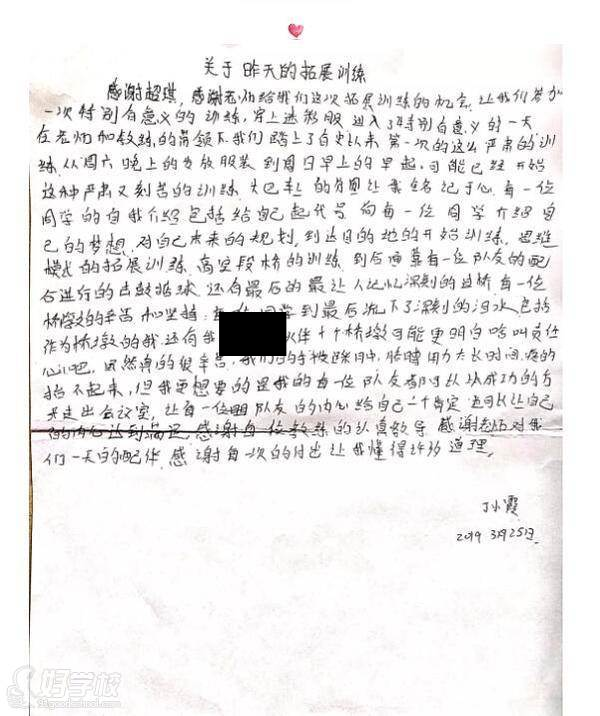 关于昨天的拓展训练
感谢超琪,感谢老师给我们这次拓展训练的机会,让我们参加
一次特别有意义的训练,穿上迷彩服进入了特别有意义的一天
在老师和教练的带领下我们踏上了自史以来第一次的这么严肃的训
练.从周六晚上的发放服装到周日早上的早起,可能已经开始
这种严肃又刻苦的训练 大巴车上的氛围让我铭记于心,每一位
同学的自我介绍包括给自己起代号 向每一位同学介绍自
己的梦想,对自己未来的规划,到达目的地的开始训练,思维
模式的拓展训练,高空段桥的训练,到后面靠每一位队友的配
合进行的击鼓踮球 还有最后的最让人记忆深刻的过桥 每一位
桥墩的辛苦和坚持,每位同学到最后流下了深刻的泪水 包括
作为桥墩的我,还有我 伙伴 个桥墩可能更明白啥叫责任
心吧,虽然真的很辛苦,我们的手被踩, 胳膊用力太长时间,疼的
抬不起来,但我要想要的是我的每一位队友都可以以成功的方
式走出会议室,让每一位队友的内心给自己一个肯定 让自己
的内心达到满足,感谢每一位教练的认真教导 感谢老师对我
们一天的配伴,感谢每一次的付出让我懂得许多道理。
丁小霞
2019 3月25日.
好学校
91goodschool.com